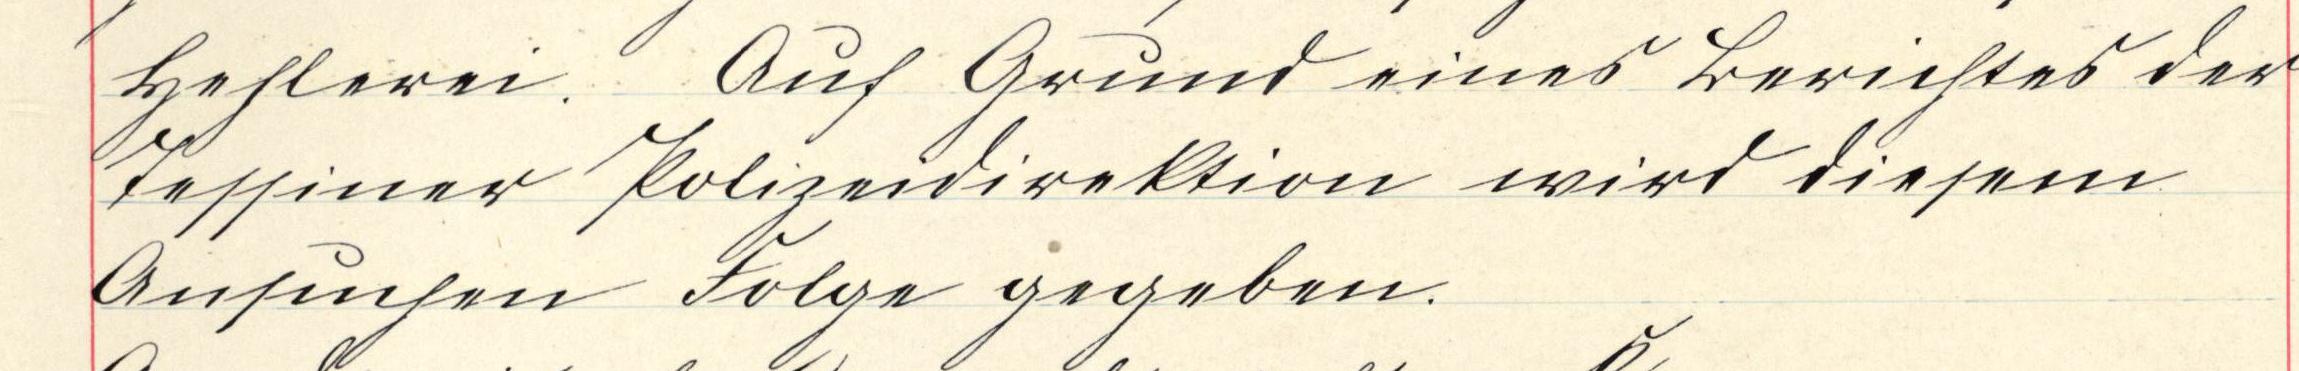 Hehlerei. Auf Grund eines Berichtes der
Tessiner Polizeidirektion wird diesem
Ansuchen Folge gegeben.